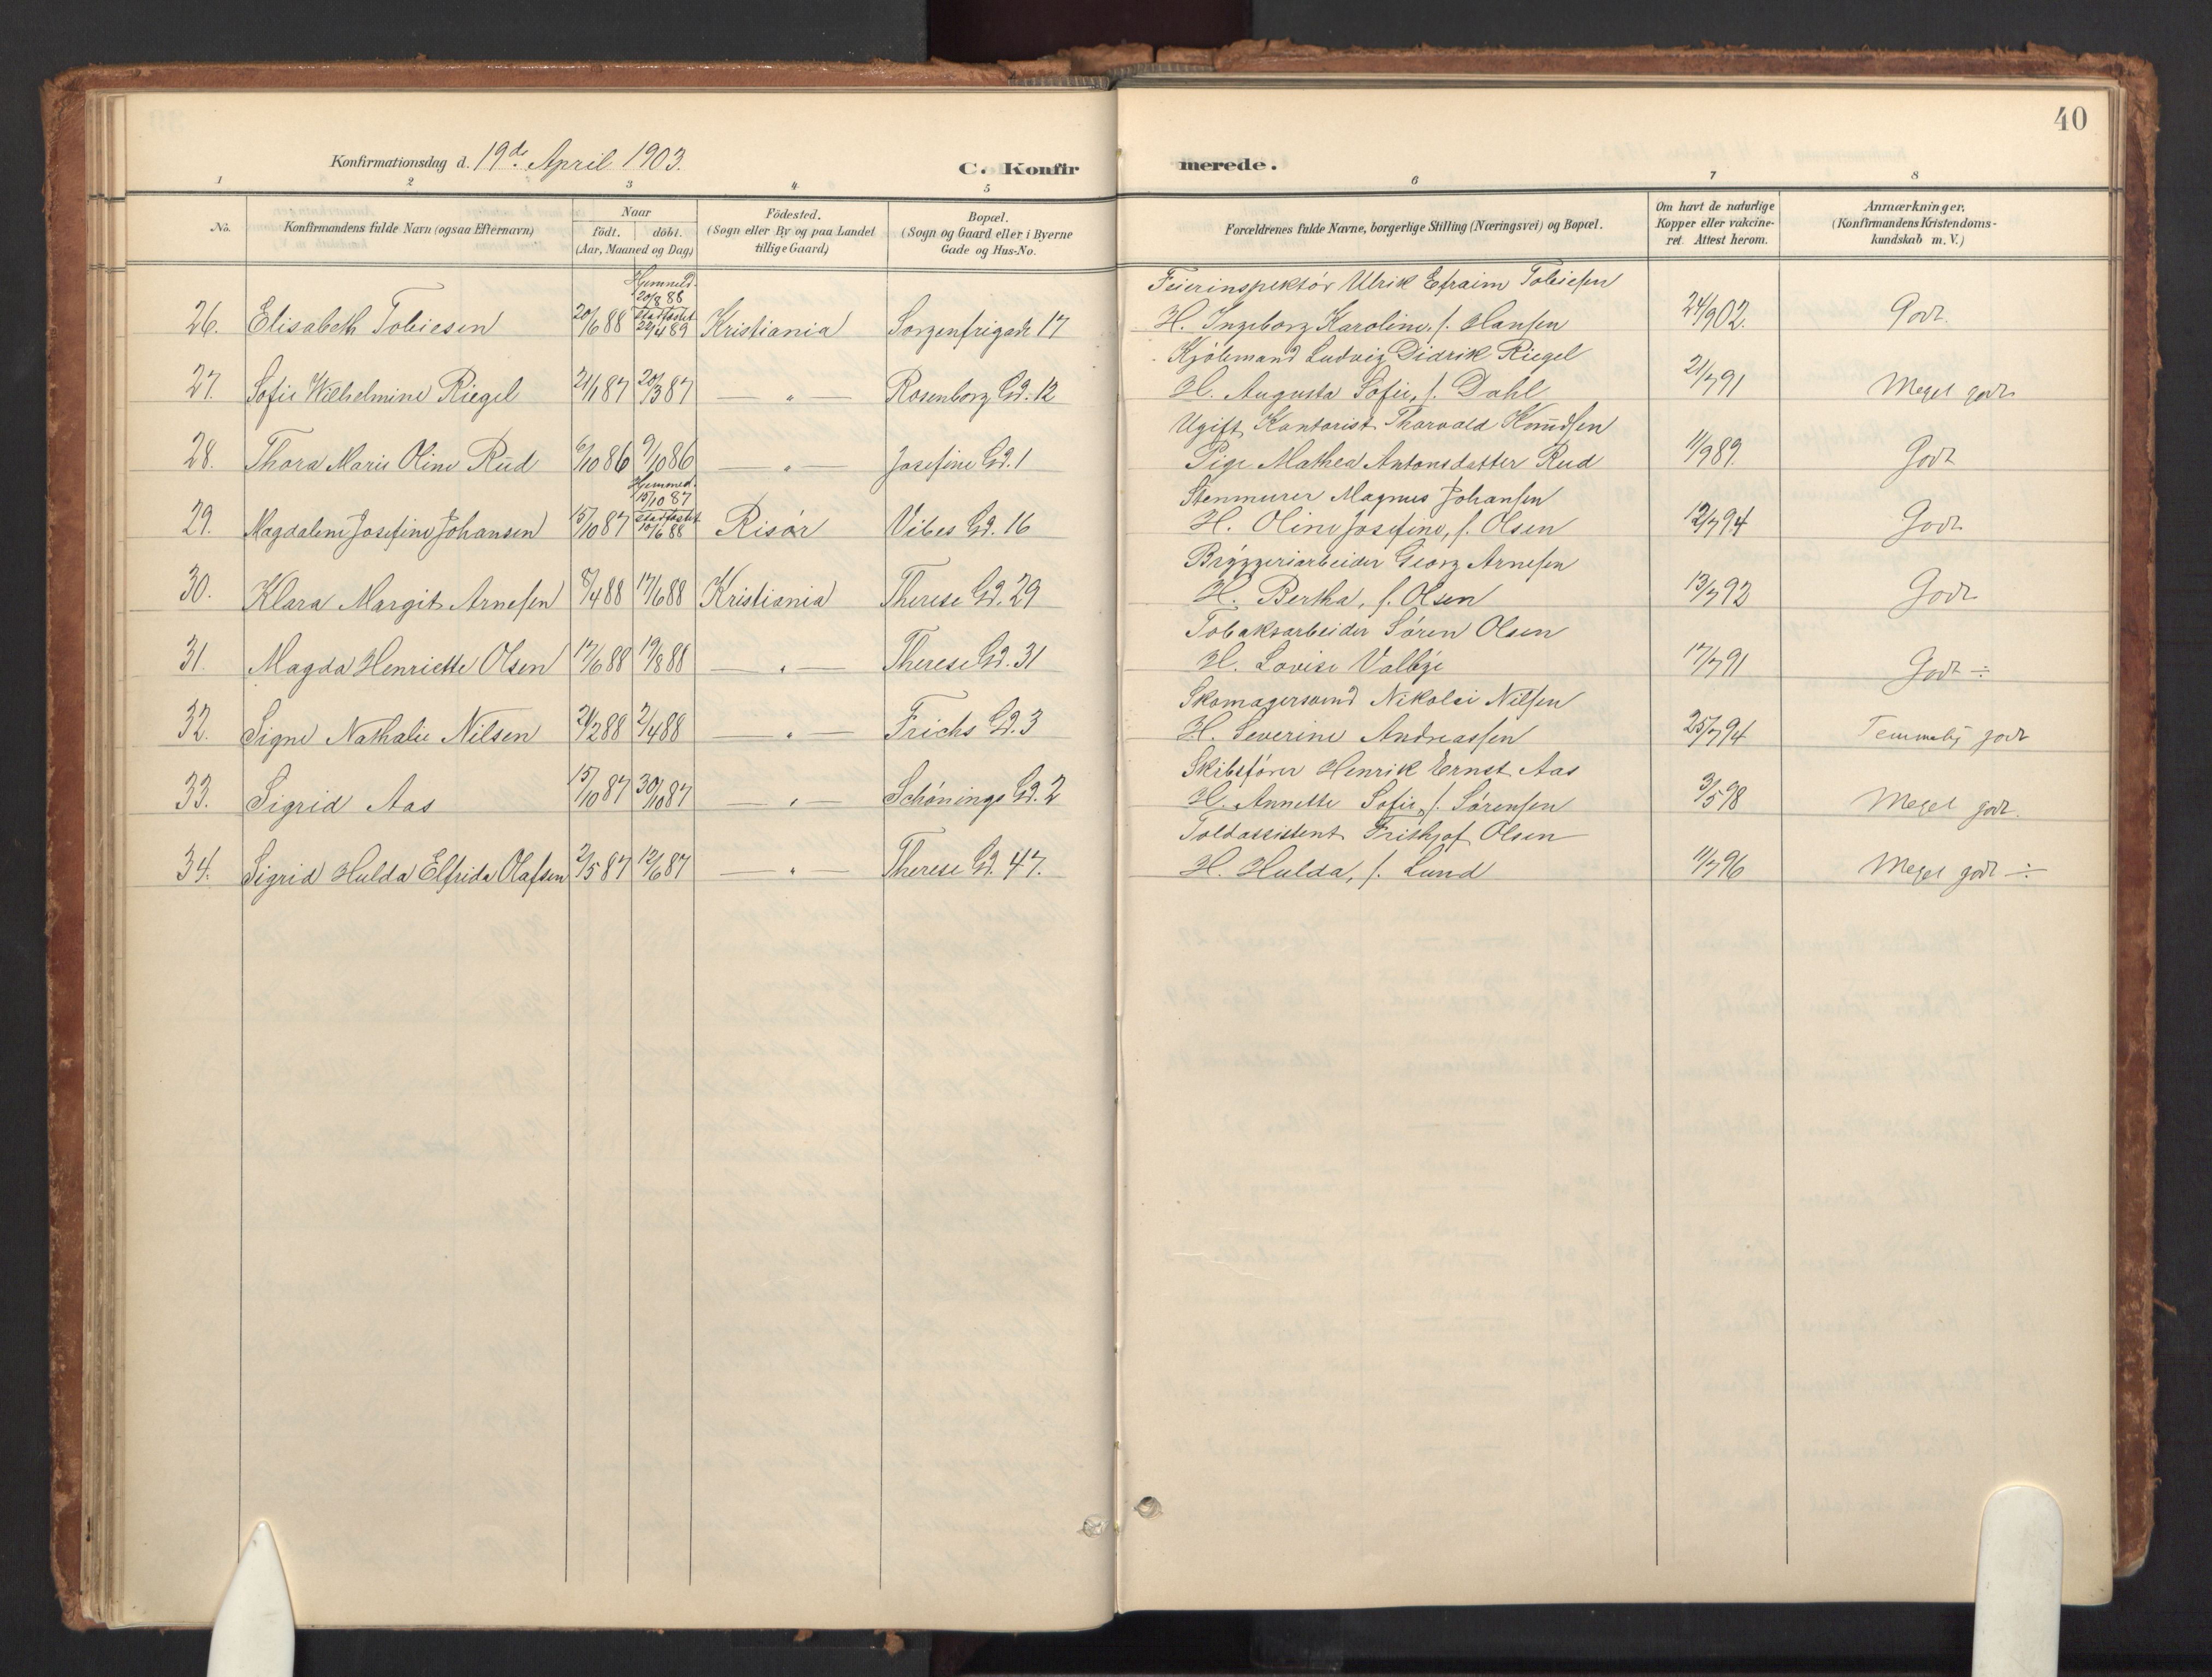 40
Konfirmationsdag d. 19de April 1903.
C. Konfirmerede.
1 2 3 4 5 6 7 8
No.
Konfirmandens fulde Navn (ogsaa Efternavn)
Naar
födt. döbt.
(Aar, Maaned og Dag)
Födested.
(Sogn eller By og paa Landet
tillige Gaard)
Bopæl.
(Sogn og Gaard eller i Byerne
Gade og Hus-No.
Forældrenes fulde Navne, borgerlige Stilling (Næringsvei) og Bopæl.
Om havt de naturlige
Kopper eller vakcine-
ret. Attest herom.
Anmærkninger,
(Konfirmandens Kristendoms-
kundskab m. V.)
Hjemmed.
20/8 88
stadfæstet
Feierinspektör Ulrik Efraim Tobiesen
26. Elisabeth Tobiesen 20/6 88 22/4 89 Kristiania Sorgenfrigade 17 H. Ingeborg Karoline, f. Hansen 24/9 02. Godt.
Kjölemand Ludvig Didrik Riegel
27. Sofie Wilhelmine Riegel 21/1 87 20/3 87 — „ — Rosenborg Gd. 12 H. Augusta Sofie, f. Dahl 21/7 91 Meget godt
Ugift Kontorist Thorvald Knudsen
28. Thora Marie Oline Rud 6/10 86 9/10 86 — „ — Josefine Gd. 1 Pige Mathea Antonsdatter Rud 11/9 89. Godt
Hjemmed.
15/10 87
stadfæstet
Stenmurer Magnus Johansen
29. Magdalene Josefine Johansen 15/10 87 10/6 88 Risör Vibes Gd. 16 H. Oline Josefine, f. Olsen 12/7 94 Godt
Bryggeriarbeider Georg Arnesen
30. Klara Margit Arnesen 8/4 88 17/6 88 Kristiania Therese Gd. 29 H. Bertha, f. Olsen 13/7 92 Godt
Tobaksarbeider Sören Olsen
31. Magda Henriette Olsen 17/6 88 19/8 88 — „ — Therese Gd. 31 H. Lovise Valbye 17/7 91 Godt ÷
Skomagersvend Nikolai Nilsen
32. Signe Nathalie Nilsen 21/2 88 2/4 88 — „ — Frichs Gd. 3 H. Severine Andreassen 25/7 94 Temmelig godt
Skibsförer Henrik Ernst Aas
33. Sigrid Aas 15/10 87 30/10 87 — „ — Schönings Gd. 2 H. Annette Sofie, f. Sörensen 3/5 98 Meget godt.
Toldassistent Frithjof Olsen
34. Sigrid Hulda Elfrida Olafsen 2/5 87 12/6 87 — „ — Therese Gd. 47. H. Hulda, f. Lund 11/7 96 Meget godt ÷